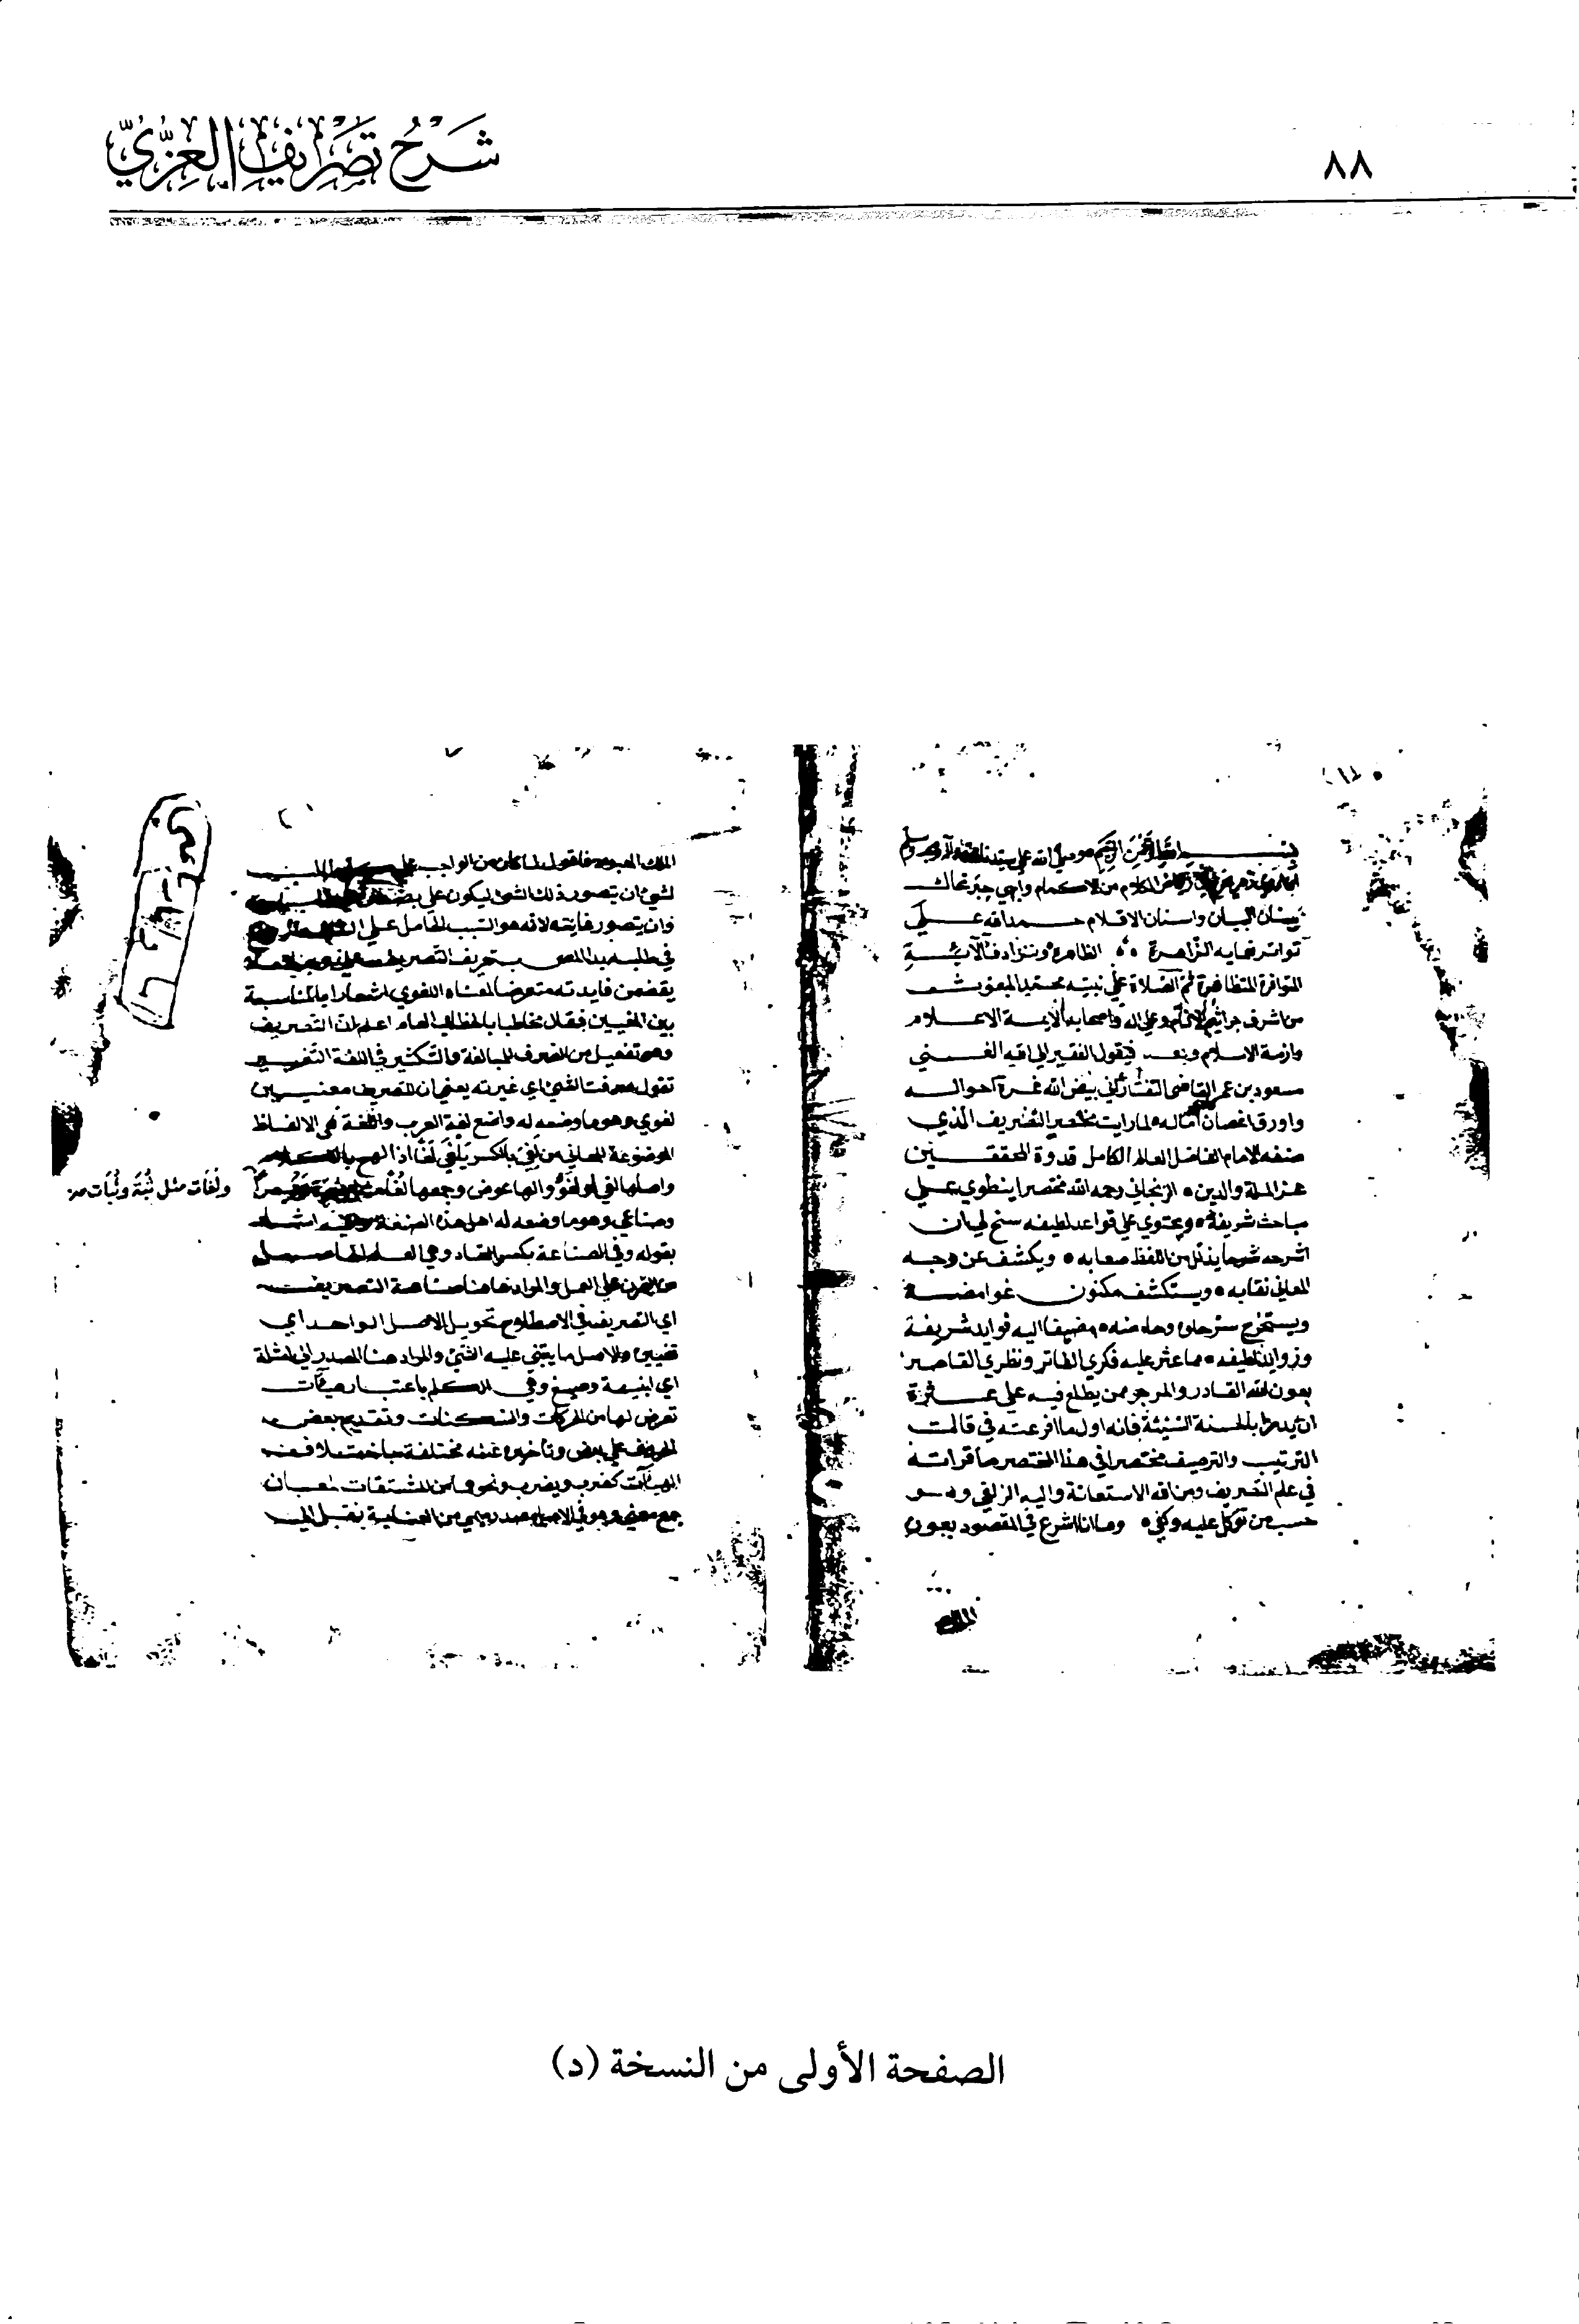 شَرْحُ تَصْرِيفِ العِزِّيِّ
٨٨
بيان البيان واسنان الاقلام حمد الله على
تواتر نعمايه الزاهرة الظاهرة وترادف آلائه
المتوافرة المتظاهرة ثم الصلاة على نبيه محمد المبعوث
من اشرف جراثيم الانام وعلى اله واصحابه الايمة الاعلام
وازمة الاسلام وبعد فيقول الفقير الى الله الغني
مسعود بن عمر القاضى التفتازاني بيض الله غرة احواله
واورق اغصان آماله لما رايت مختصر التصريف الذي
صنفه الامام الفاضل العالم الكامل قدوة المحققين
عز الملة والدين الزنجاني رحمه الله مختصرا ينطوي على
مباحث شريفة ويحتوي على قواعد لطيفه سنح لي ان
اشرحه شرحا يذلل من اللفظ صعابه ويكشف عن وجه
المعاني نقابه ويستكشف مكنون غوامضه
ويستخرج سر حلوه وحامضه مضيفا اليه فوايد شريفة
وزوايد لطيفه مما عثر عليه فكري الفاتر ونظري القاصر
بعون الله القادر والمرجو ممن يطلع فيه على عثرة
ان يدرا بالحسنة السيئة فانه اول ما افرغته في قالب
الترتيب والترصيف مختصرا في هذا المختصر ما قراته
في علم التصريف ومن الله الاستعانة واليه الزلفي وهو
حسب من توكل عليه وكفي وها انا اشرع في المقصود بعون
الملك المعبود فاقول لما كان من الواجب على
لشيء ان يتصور ذلك الشيء ليكون على
وان يتصور غايته لانه هو السبب الحامل على
في طلبه بدا المص بتعريف التصريف
يتضمن فايدته متعرضا لمعناه اللغوي اشعارا بالمناسبة
بين المعنيين فقال مخاطبا بالخطاب العام اعلم ان التصريف
وهو تفعيل من الصرف للمبالغة والتكثير في اللغة التغيير
تقول صرفت الشيء اي غيرته يعني ان للتصريف معنيين
لغوي وهو ما وضعه له واضع لغة العرب واللغة هي الالفاظ
الموضوعة للمعاني من لغي بالكسر يلغى لغا اذا لهج بالكلام
واصلها لغي او لغو والها عوض وجمعها لغى
ولغات مثل ثبة وثبات
وصناعي وهو ما وضعه له اهل هذه الصنعة
بقوله وفي الصناعة بكسر الصاد وهي العلم الحاصل
من التمرن على العمل والمراد هاهنا صناعة التصريف
اي التصريف في الاصطلاح تحويل الاصل الواحد اي
تغييره والاصل ما يبتني عليه الشيء والمراد هنا المصدر الى امثلة
اي ابنية وصيغ وهي الكلم باعتبار هيئات
تعرض لها من الحركات والسكنات وتقديم بعض
الحروف على بعض وتاخيره عنه مختلفة باختلاف
الهيآت كضرب ويضرب ونحوهما من المشتقات لمعان
جمع معنى وهو في الاصل مصدر ميمي من العناية ثم نقل الى
الصفحة الأولى من النسخة (د)